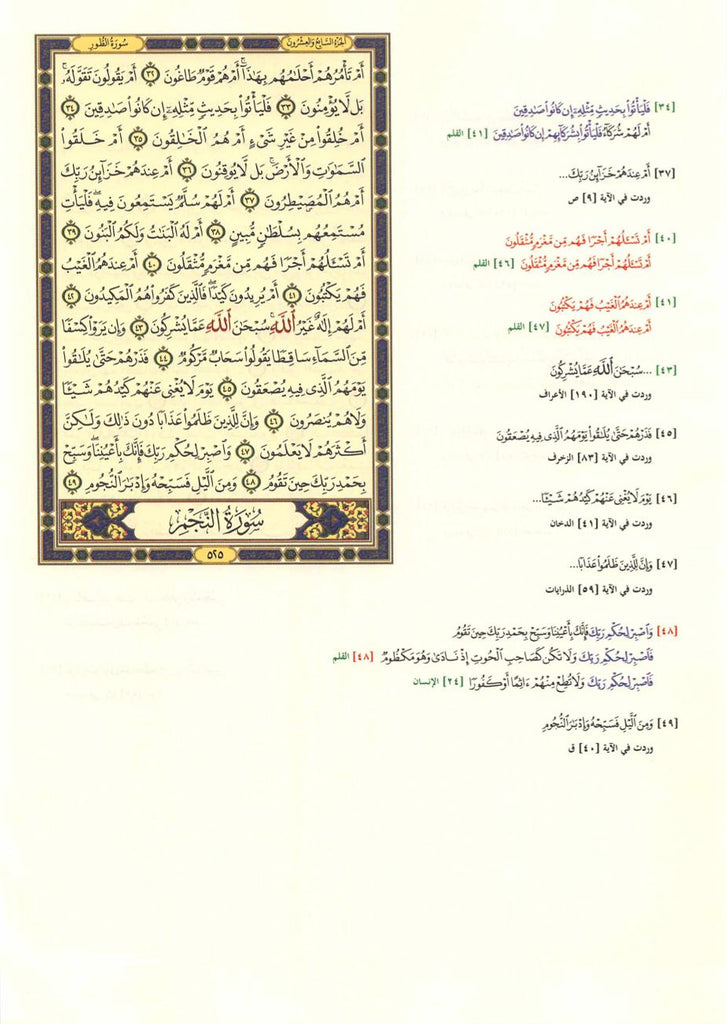 الجزء السابع والعشرون
سورة الطور
أَمْ تَأْمُرُهُمْ أَحْلَٰمُهُم بِهَٰذَآ ۚ أَمْ هُمْ قَوْمٌ طَاغُونَ ٣٢ أَمْ يَقُولُونَ تَقَوَّلَهُۥ ۚ
بَل لَّا يُؤْمِنُونَ ٣٣ فَلْيَأْتُوا۟ بِحَدِيثٍ مِّثْلِهِۦٓ إِن كَانُوا۟ صَٰدِقِينَ ٣٤
أَمْ خُلِقُوا۟ مِنْ غَيْرِ شَىْءٍ أَمْ هُمُ ٱلْخَٰلِقُونَ ٣٥ أَمْ خَلَقُوا۟
ٱلسَّمَٰوَٰتِ وَٱلْأَرْضَ ۚ بَل لَّا يُوقِنُونَ ٣٦ أَمْ عِندَهُمْ خَزَآئِنُ رَبِّكَ
أَمْ هُمُ ٱلْمُصَۣيْطِرُونَ ٣٧ أَمْ لَهُمْ سُلَّمٌ يَسْتَمِعُونَ فِيهِ ۖ فَلْيَأْتِ
مُسْتَمِعُهُم بِسُلْطَٰنٍ مُّبِينٍ ٣٨ أَمْ لَهُ ٱلْبَنَٰتُ وَلَكُمُ ٱلْبَنُونَ ٣٩
أَمْ تَسْـَٔلُهُمْ أَجْرًا فَهُم مِّن مَّغْرَمٍ مُّثْقَلُونَ ٤٠ أَمْ عِندَهُمُ ٱلْغَيْبُ
فَهُمْ يَكْتُبُونَ ٤١ أَمْ يُرِيدُونَ كَيْدًا ۖ فَٱلَّذِينَ كَفَرُوا۟ هُمُ ٱلْمَكِيدُونَ ٤٢
أَمْ لَهُمْ إِلَٰهٌ غَيْرُ ٱللَّهِ ۚ سُبْحَٰنَ ٱللَّهِ عَمَّا يُشْرِكُونَ ٤٣ وَإِن يَرَوْا۟ كِسْفًا
مِّنَ ٱلسَّمَآءِ سَاقِطًا يَقُولُوا۟ سَحَابٌ مَّرْكُومٌ ٤٤ فَذَرْهُمْ حَتَّىٰ يُلَٰقُوا۟
يَوْمَهُمُ ٱلَّذِى فِيهِ يُصْعَقُونَ ٤٥ يَوْمَ لَا يُغْنِى عَنْهُمْ كَيْدُهُمْ شَيْـًٔا
وَلَا هُمْ يُنصَرُونَ ٤٦ وَإِنَّ لِلَّذِينَ ظَلَمُوا۟ عَذَابًا دُونَ ذَٰلِكَ وَلَٰكِنَّ
أَكْثَرَهُمْ لَا يَعْلَمُونَ ٤٧ وَٱصْبِرْ لِحُكْمِ رَبِّكَ فَإِنَّكَ بِأَعْيُنِنَا ۖ وَسَبِّحْ
بِحَمْدِ رَبِّكَ حِينَ تَقُومُ ٤٨ وَمِنَ ٱلَّيْلِ فَسَبِّحْهُ وَإِدْبَٰرَ ٱلنُّجُومِ ٤٩
سُورَةُ النَّجْمِ
٥٢٥
[٣٤] فَلْيَأْتُوا۟ بِحَدِيثٍ مِّثْلِهِۦٓ إِن كَانُوا۟ صَٰدِقِينَ
أَمْ لَهُمْ شُرَكَآءُ فَلْيَأْتُوا۟ بِشُرَكَآئِهِمْ إِن كَانُوا۟ صَٰدِقِينَ [٤١] القلم
[٣٧] أَمْ عِندَهُمْ خَزَآئِنُ رَبِّكَ...
وردت في الآية [٩] ص
[٤٠] أَمْ تَسْـَٔلُهُمْ أَجْرًا فَهُم مِّن مَّغْرَمٍ مُّثْقَلُونَ
أَمْ تَسْـَٔلُهُمْ أَجْرًا فَهُم مِّن مَّغْرَمٍ مُّثْقَلُونَ [٤٦] القلم
[٤١] أَمْ عِندَهُمُ ٱلْغَيْبُ فَهُمْ يَكْتُبُونَ
أَمْ عِندَهُمُ ٱلْغَيْبُ فَهُمْ يَكْتُبُونَ [٤٧] القلم
[٤٣] ...سُبْحَٰنَ ٱللَّهِ عَمَّا يُشْرِكُونَ
وردت في الآية [١٩٠] الأعراف
[٤٥] فَذَرْهُمْ حَتَّىٰ يُلَٰقُوا۟ يَوْمَهُمُ ٱلَّذِى فِيهِ يُصْعَقُونَ
وردت في الآية [٨٣] الزخرف
[٤٦] يَوْمَ لَا يُغْنِى عَنْهُمْ كَيْدُهُمْ شَيْـًٔا...
وردت في الآية [٤١] الدخان
[٤٧] وَإِنَّ لِلَّذِينَ ظَلَمُوا۟ عَذَابًا...
وردت في الآية [٥٩] الذرايات
[٤٨] وَٱصْبِرْ لِحُكْمِ رَبِّكَ فَإِنَّكَ بِأَعْيُنِنَا وَسَبِّحْ بِحَمْدِ رَبِّكَ حِينَ تَقُومُ
فَٱصْبِرْ لِحُكْمِ رَبِّكَ وَلَا تَكُن كَصَاحِبِ ٱلْحُوتِ إِذْ نَادَىٰ وَهُوَ مَكْظُومٌ [٤٨] القلم
فَٱصْبِرْ لِحُكْمِ رَبِّكَ وَلَا تُطِعْ مِنْهُمْ ءَاثِمًا أَوْ كَفُورًا [٢٤] الإنسان
[٤٩] وَمِنَ ٱلَّيْلِ فَسَبِّحْهُ وَإِدْبَٰرَ ٱلنُّجُومِ
وردت في الآية [٤٠] ق